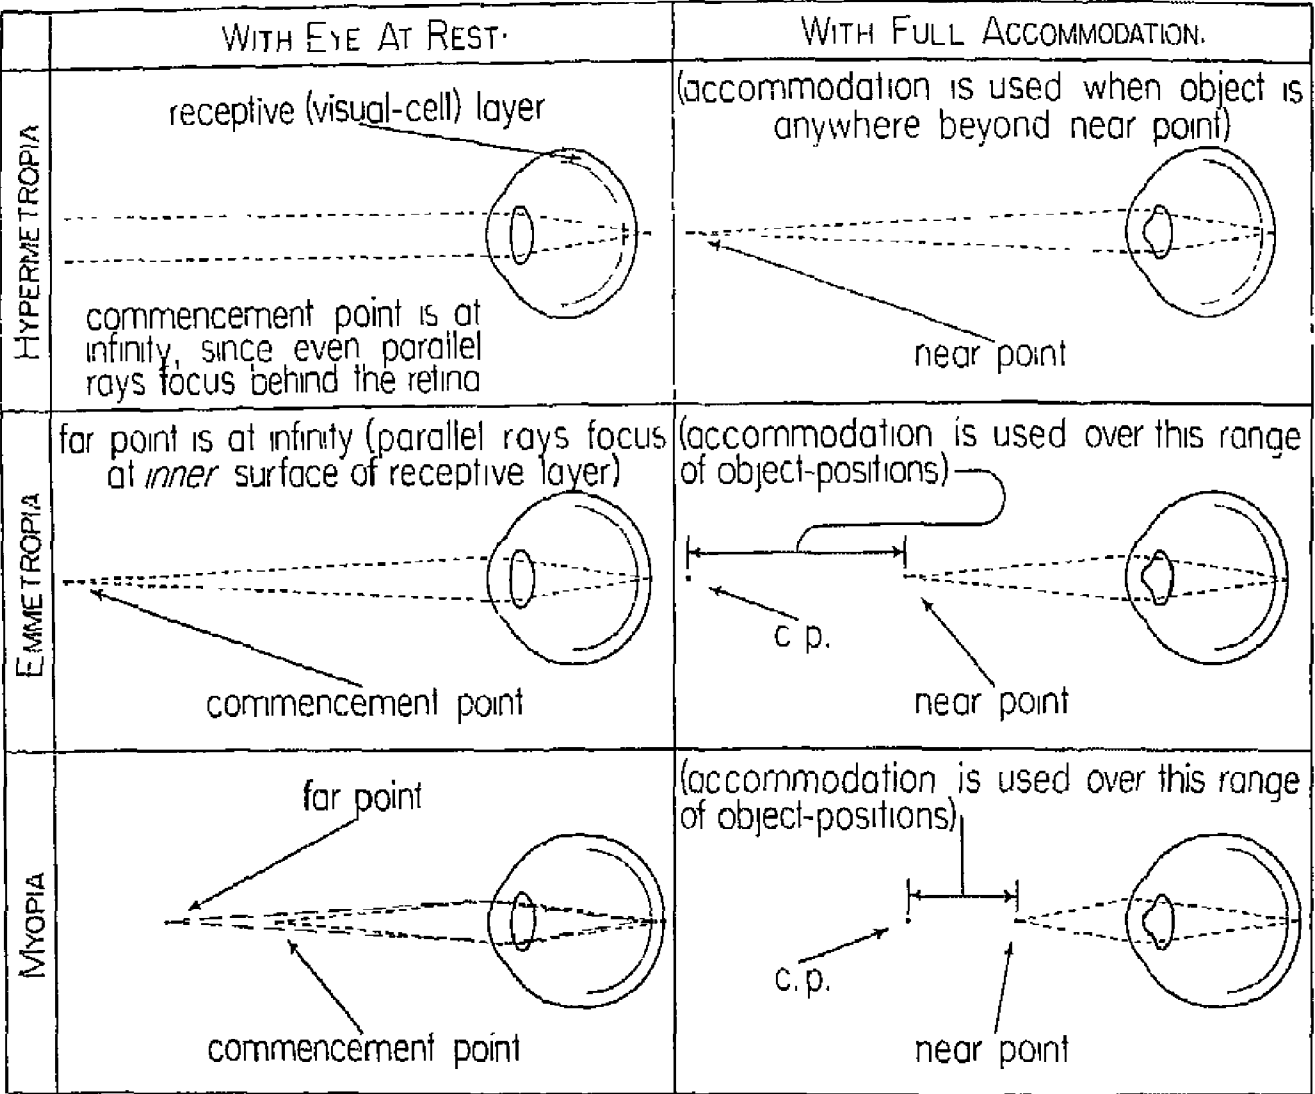 WITH EYE AT REST.
WITH FULL ACCOMMODATION.
HYPERMETROPIA
receptive (visual-cell) layer
commencement point is at
infinity, since even parallel
rays focus behind the retina
(accommodation is used when object is
anywhere beyond near point)
near point
EMMETROPIA
far point is at infinity (parallel rays focus
at inner surface of receptive layer)
commencement point
(accommodation is used over this range
of object-positions)
c p.
near point
MYOPIA
far point
commencement point
(accommodation is used over this range
of object-positions)
c.p.
near point